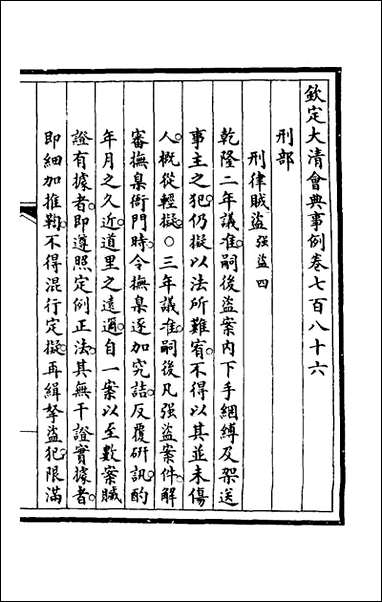 欽定大清會典事例卷七百八十六
刑部
刑律賊盜强盜四
乾隆二年議准嗣後盜案內下手綑縛及架送
事主之犯仍擬以法所難宥不得以其並未傷
人概從輕擬○三年議准嗣後凡强盜案件解
審撫臬衙門時令撫臬逐加究詰反覆研訊酌
年月之久近道里之遠過自一案以至數案贓
證有據者即遵照定例正法其無干證實據者
即細加推鞫不得混行定擬再緝拏盜犯限滿